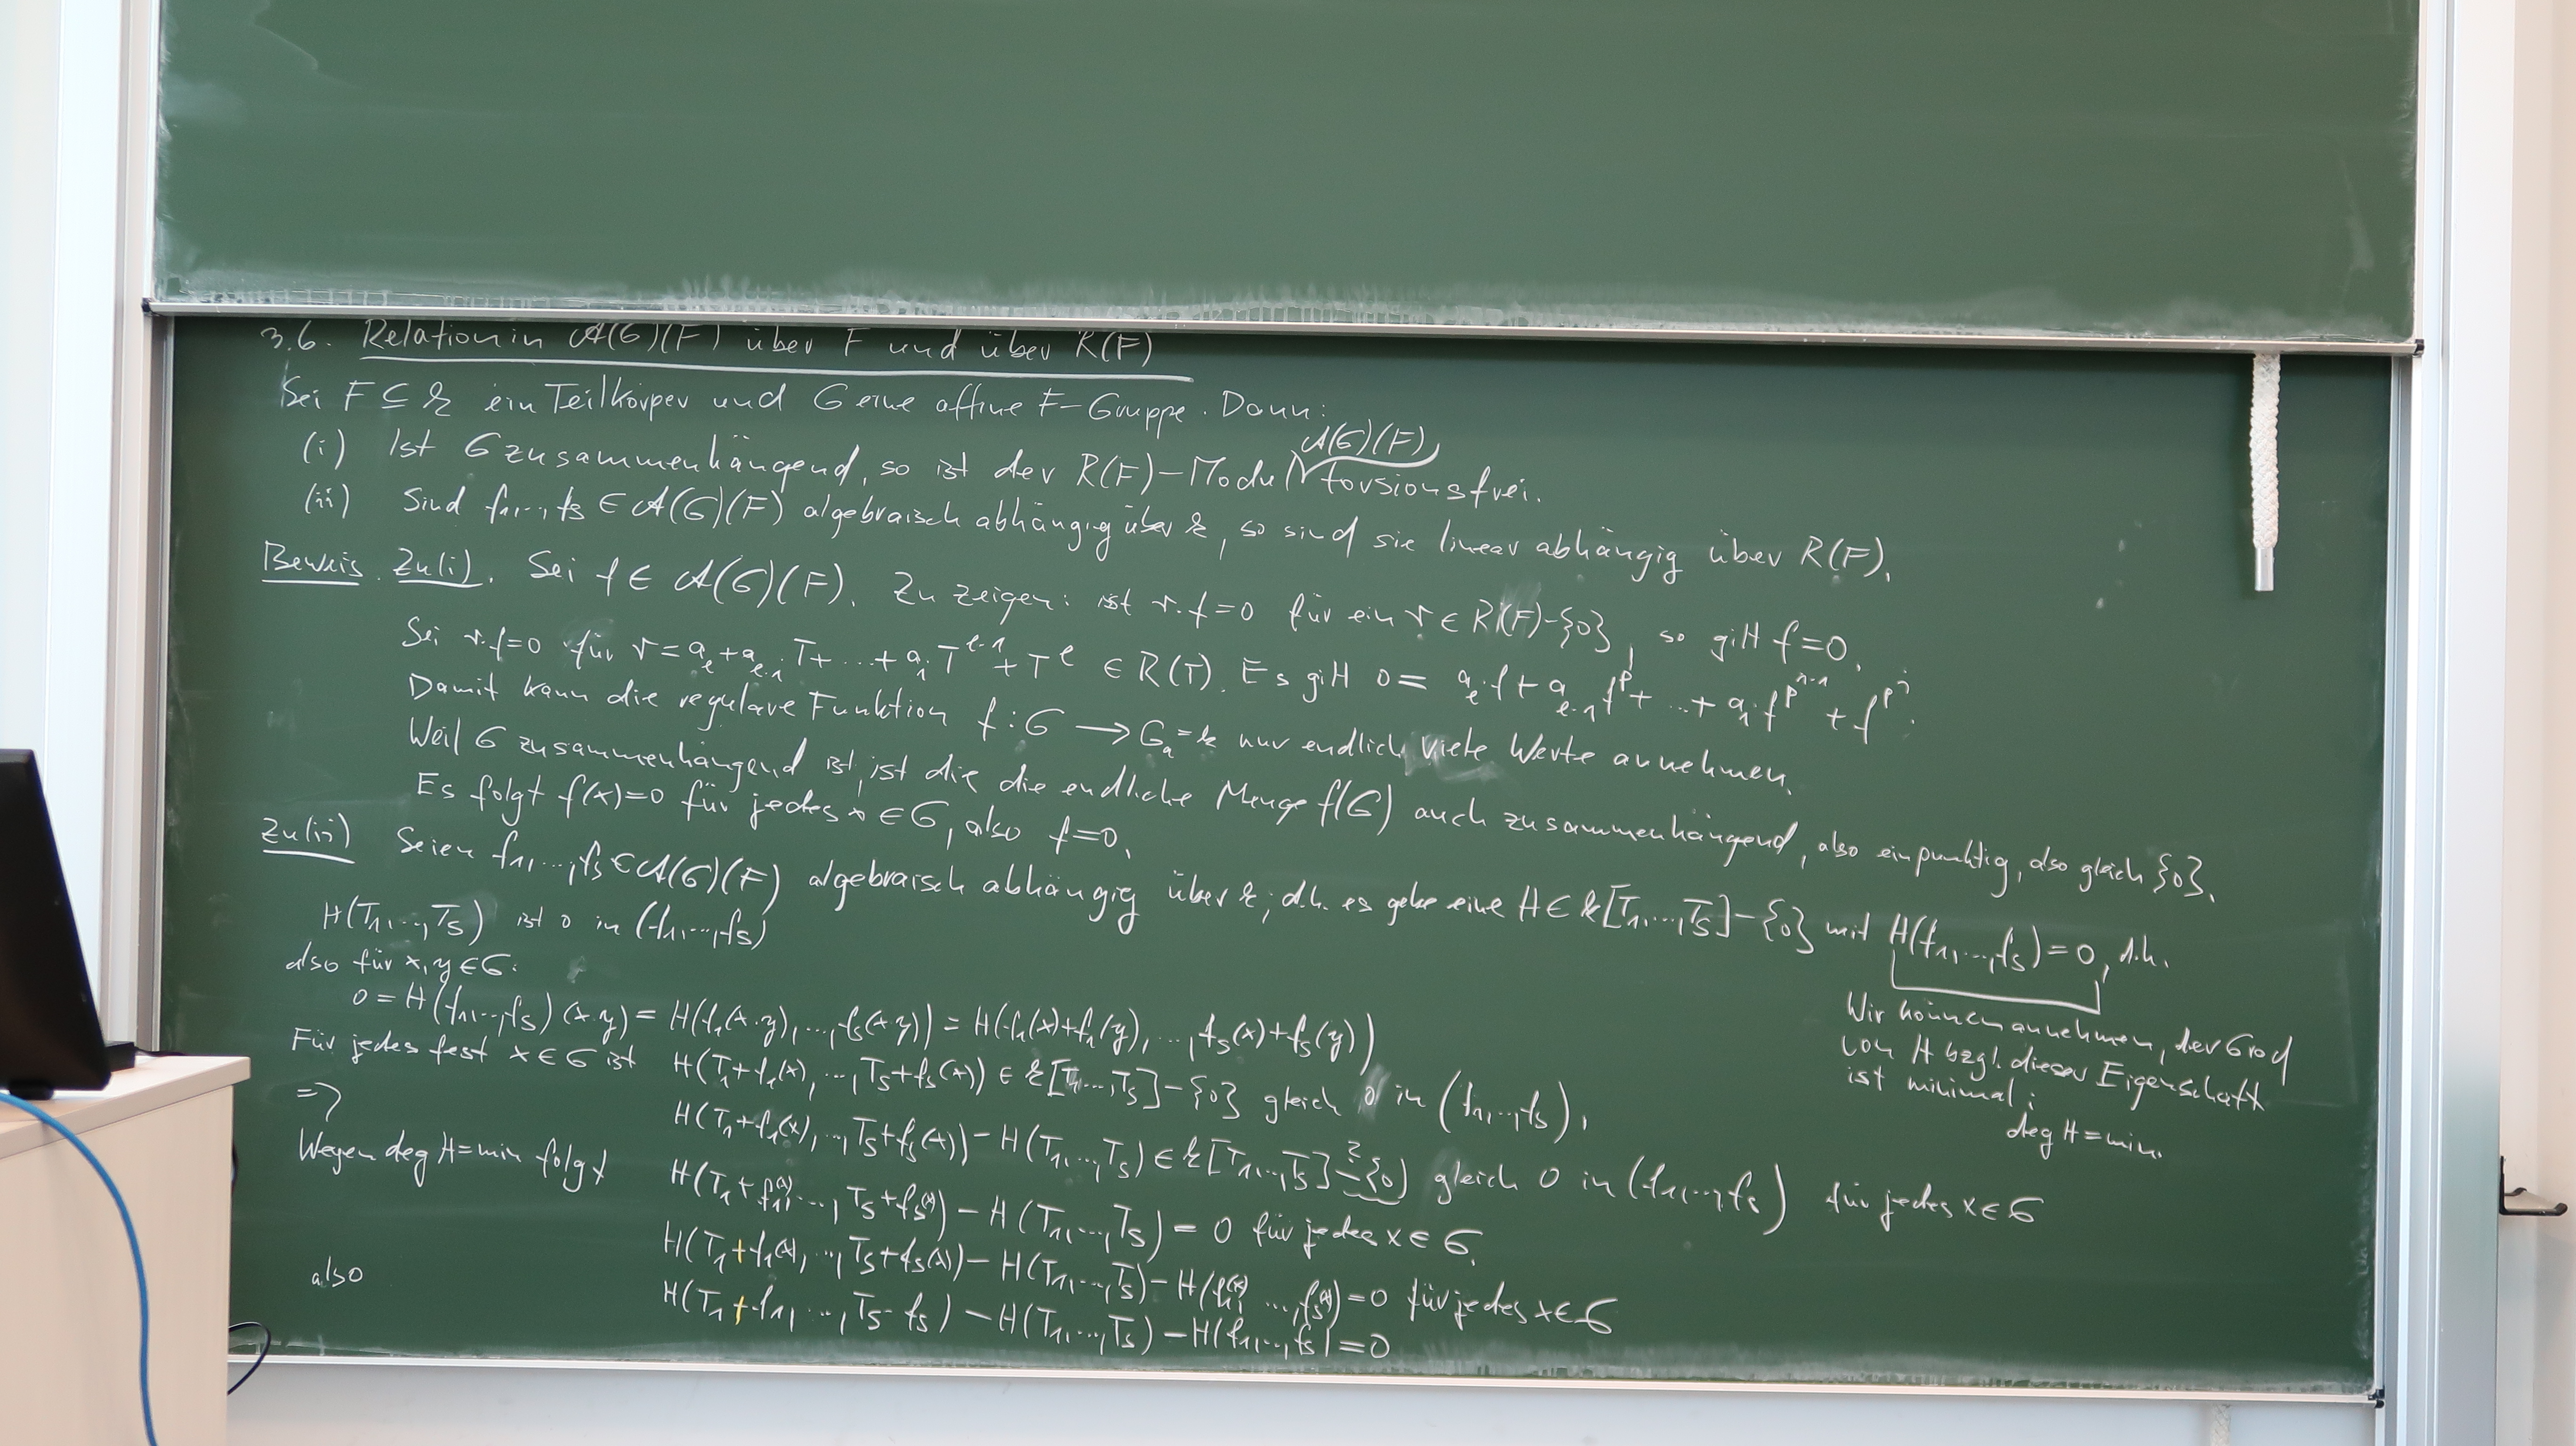 3.6. Relation in 𝒜(G)(F) über F und über R(F)
Sei F ⊆ k ein Teilkörper und G eine affine F-Gruppe. Dann:
(i) Ist G zusammenhängend, so ist der R(F)-Modul 𝒜(G)(F) torsionsfrei.
(ii) Sind f₁,...,fₛ ∈ 𝒜(G)(F) algebraisch abhängig über k, so sind sie linear abhängig über R(F).
Beweis. Zu (i). Sei f ∈ 𝒜(G)(F). Zu zeigen: ist r·f=0 für ein r ∈ R(F)-{0}, so gilt f=0.
Sei r·f=0 für r = a_e + a_{e-1} T + ... + a₁ T^{e-1} + T^e ∈ R(T). Es gilt 0 = a_e·f + a_{e-1} f^p + ... + a₁·f^{p^{n-1}} + f^{p^n}.
Damit kann die reguläre Funktion f: G → G_a = k nur endlich viele Werte annehmen.
Weil G zusammenhängend ist, ist die die endliche Menge f(G) auch zusammenhängend, also einpunktig, also gleich {0}.
Es folgt f(x)=0 für jedes x ∈ G, also f=0.
Zu (ii) Seien f₁,...,fₛ ∈ 𝒜(G)(F) algebraisch abhängig über k, d.h. es gebe eine H ∈ k[T₁,...,Tₛ]-{0} mit H(f₁,...,fₛ)=0, d.h.
H(T₁,...,Tₛ) ist 0 in (f₁,...,fₛ)
Wir können annehmen, der Grad
von H bzgl. dieser Eigenschaft
ist minimal:
deg H = min.
also für x,y ∈ G:
0 = H(f₁,...,fₛ)(x·y) = H(f₁(x·y),...,fₛ(x·y)) = H(f₁(x)+f₁(y),...,fₛ(x)+fₛ(y))
Für jedes fest x ∈ G ist H(T₁+f₁(x),...,Tₛ+fₛ(x)) ∈ k[T₁,...,Tₛ]-{0} gleich 0 in (f₁,...,fₛ),
⇒ H(T₁+f₁(x),...,Tₛ+fₛ(x)) - H(T₁,...,Tₛ) ∈ k[T₁,...,Tₛ] -̇{0} ? gleich 0 in (f₁,...,fₛ) für jedes x ∈ G
Wegen deg H = min folgt H(T₁+f₁(x),...,Tₛ+fₛ(x)) - H(T₁,...,Tₛ) = 0 für jedes x ∈ G.
H(T₁+f₁(x),...,Tₛ+fₛ(x)) - H(T₁,...,Tₛ) - H(f₁(x),...,fₛ(x)) = 0 für jedes x ∈ G
also H(T₁+f₁,...,Tₛ-fₛ) - H(T₁,...,Tₛ) - H(f₁,...,fₛ) = 0